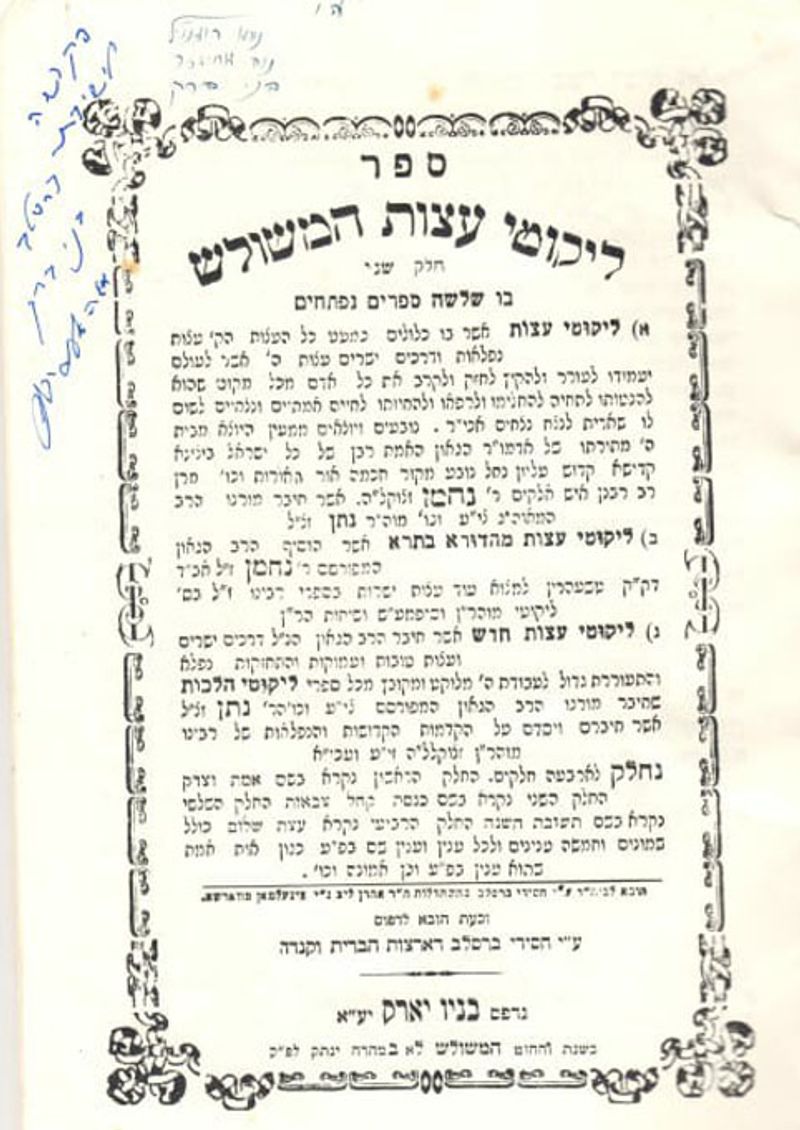 ספר
ליקוטי עצות המשולש
חלק שני
בו שלשה ספרים נפתחים
א) ליקוטי עצות אשר בו כלולים כמעט כל העצות הק' עצות
נפלאות ודרכים ישרים עצות ה' אשר לעולם
יעמידו לעורר ולהקיץ לחזק ולקרב את כל אדם מכל מקום שהוא
להטותו לתחיה להחלימו ולרפאו ולהחיותו לחיים אמתיים ונצחיים לשום
לו שארית לנצח נצחים אכי"ר. נובעים ויוצאים ממעין היוצא מבית
ה' מתורתו של אדמו"ר הגאון האמת רבן של כל ישראל בוצינא
קדישא קדוש עליון נחל נובע מקור חכמה אור האורות וכו' מרן
רב רבנן איש אלקים ר' נחמן זצוקל"ה. אשר חיבר מורנו הרב
המאוה"ג לי"ע וכו' מוה"ר נתן זצ"ל
ב) ליקוטי עצות מהדורא בתרא אשר הוסיף הרב הגאון
המפורסם ר' נחמן ז"ל אב"ד
דק"ק טשעהרין למצוא עוד עצות ישרות בספרי רבינו ז"ל בס'
ליקוטי מוהר"ן וסיפמע"ש ושיחות הר"ן
ג) ליקוטי עצות חדש אשר חיבר הרב הגאון הנ"ל דרכים ישרים
ועצות טובות ועמוקות והתחזקות נפלא
והתעוררת גדול לעבודת ה' מלוקט ומקובץ מכל ספרי ליקוטי הלכות
שחיבר מורנו הרב הגאון המפורסם לי"ע וכו' נתן זצ"ל
אשר חיברם ויסדם על הקדמות הקדושות והנפלאות של רבינו
מוהר"ן זצוקללה"ה זי"ע ועכי"א
נחלק לארבעה חלקים. החלק הראשון נקרא בשם אמת וצדק
החלק השני נקרא בשם כנסה קהל צבאות החלק השלשי
נקרא בשם תשובת השנה החלק הרביעי נקרא עצת שלום כולל
שמונים וחמשה ענינים ולכל ענין וענין שם בפ"ע כגון אות אמת
שהוא ענין בפ"ע וכן אמונה וכו'.
הובא לביה"ד ע"י חסידי ברסלב בהשתדלות ה"ר אהרן ליב ני"ו מווארשא.
וכעת הובא לדפוס
ע"י חסידי ברסלב דארצות הברית וקנדה
נדפס בניו יארק יע"א
בשנת והחוט המשולש לא במהרה ינתק לפ"ק
בני ברק
בני ברק